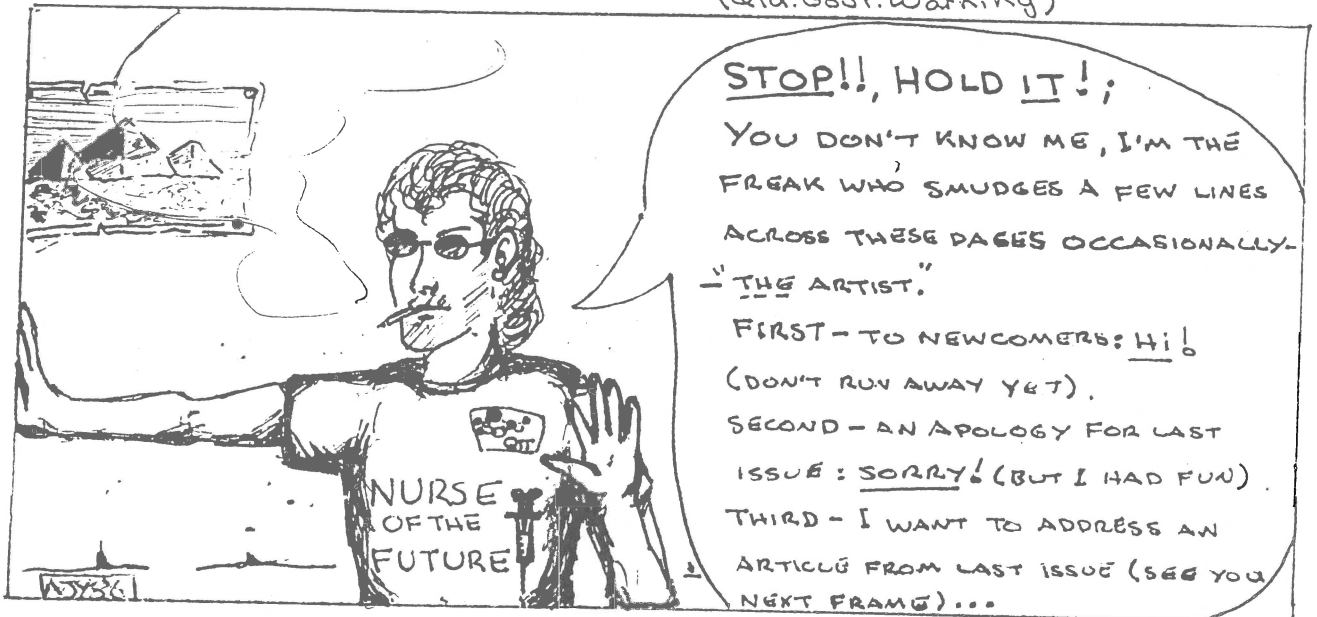 (Qld. Govt. Warning)
STOP!!, HOLD IT!;
YOU DON'T KNOW ME, I'M THE
FREAK WHO SMUDGES A FEW LINES
ACROSS THESE PAGES OCCASIONALLY-
-"THE ARTIST."
FIRST - TO NEWCOMERS: Hi!
(DON'T RUN AWAY YET).
SECOND - AN APOLOGY FOR LAST
ISSUE: SORRY! (BUT I HAD FUN).
THIRD - I WANT TO ADDRESS AN
ARTICLE FROM LAST ISSUE (SEE YOU
NEXT FRAME)...
NURSE
OF THE
FUTURE